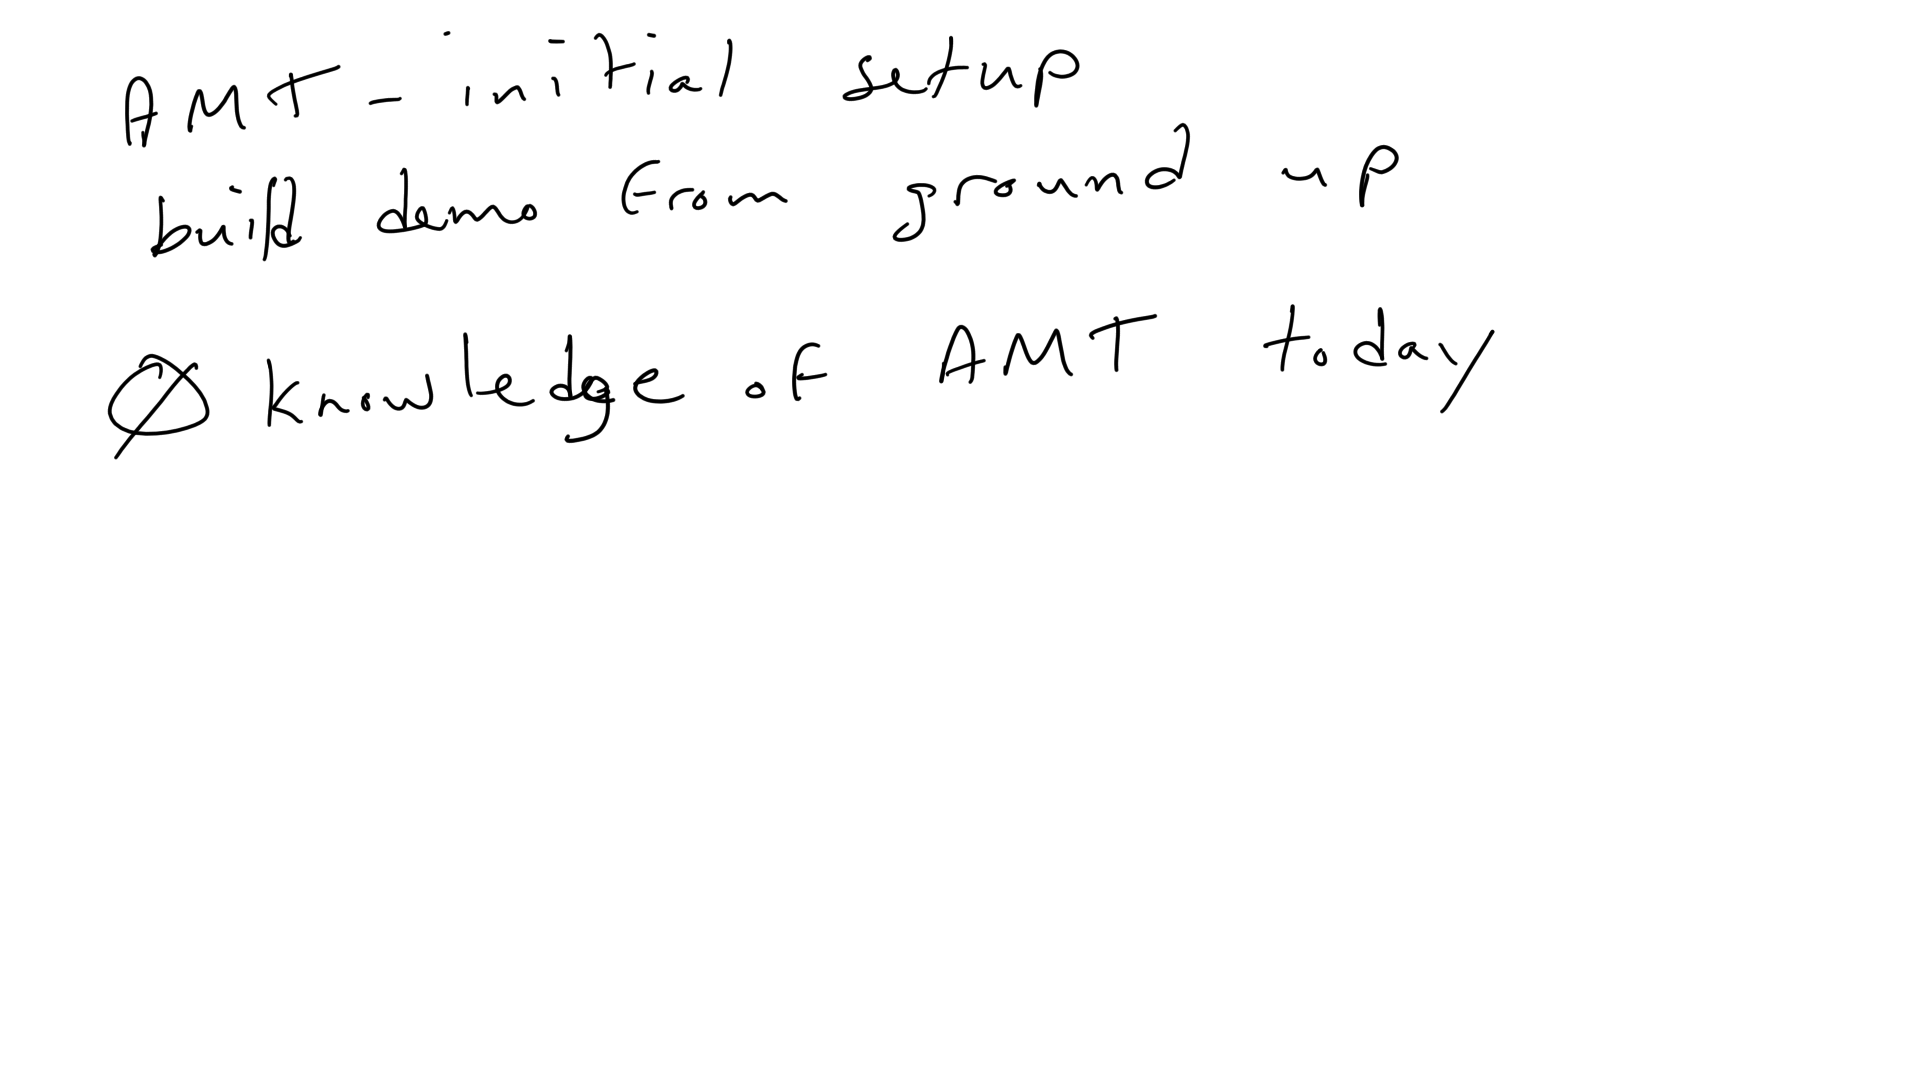 AMT - initial setup
build demo from ground up
Ø knowledge of AMT today